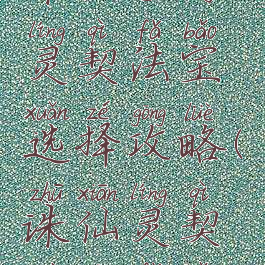 líng qì fǎ bǎo
灵契法宝
xuǎn zé gōng lüè
选择攻略(
zhū xiān líng qì
诛仙灵契